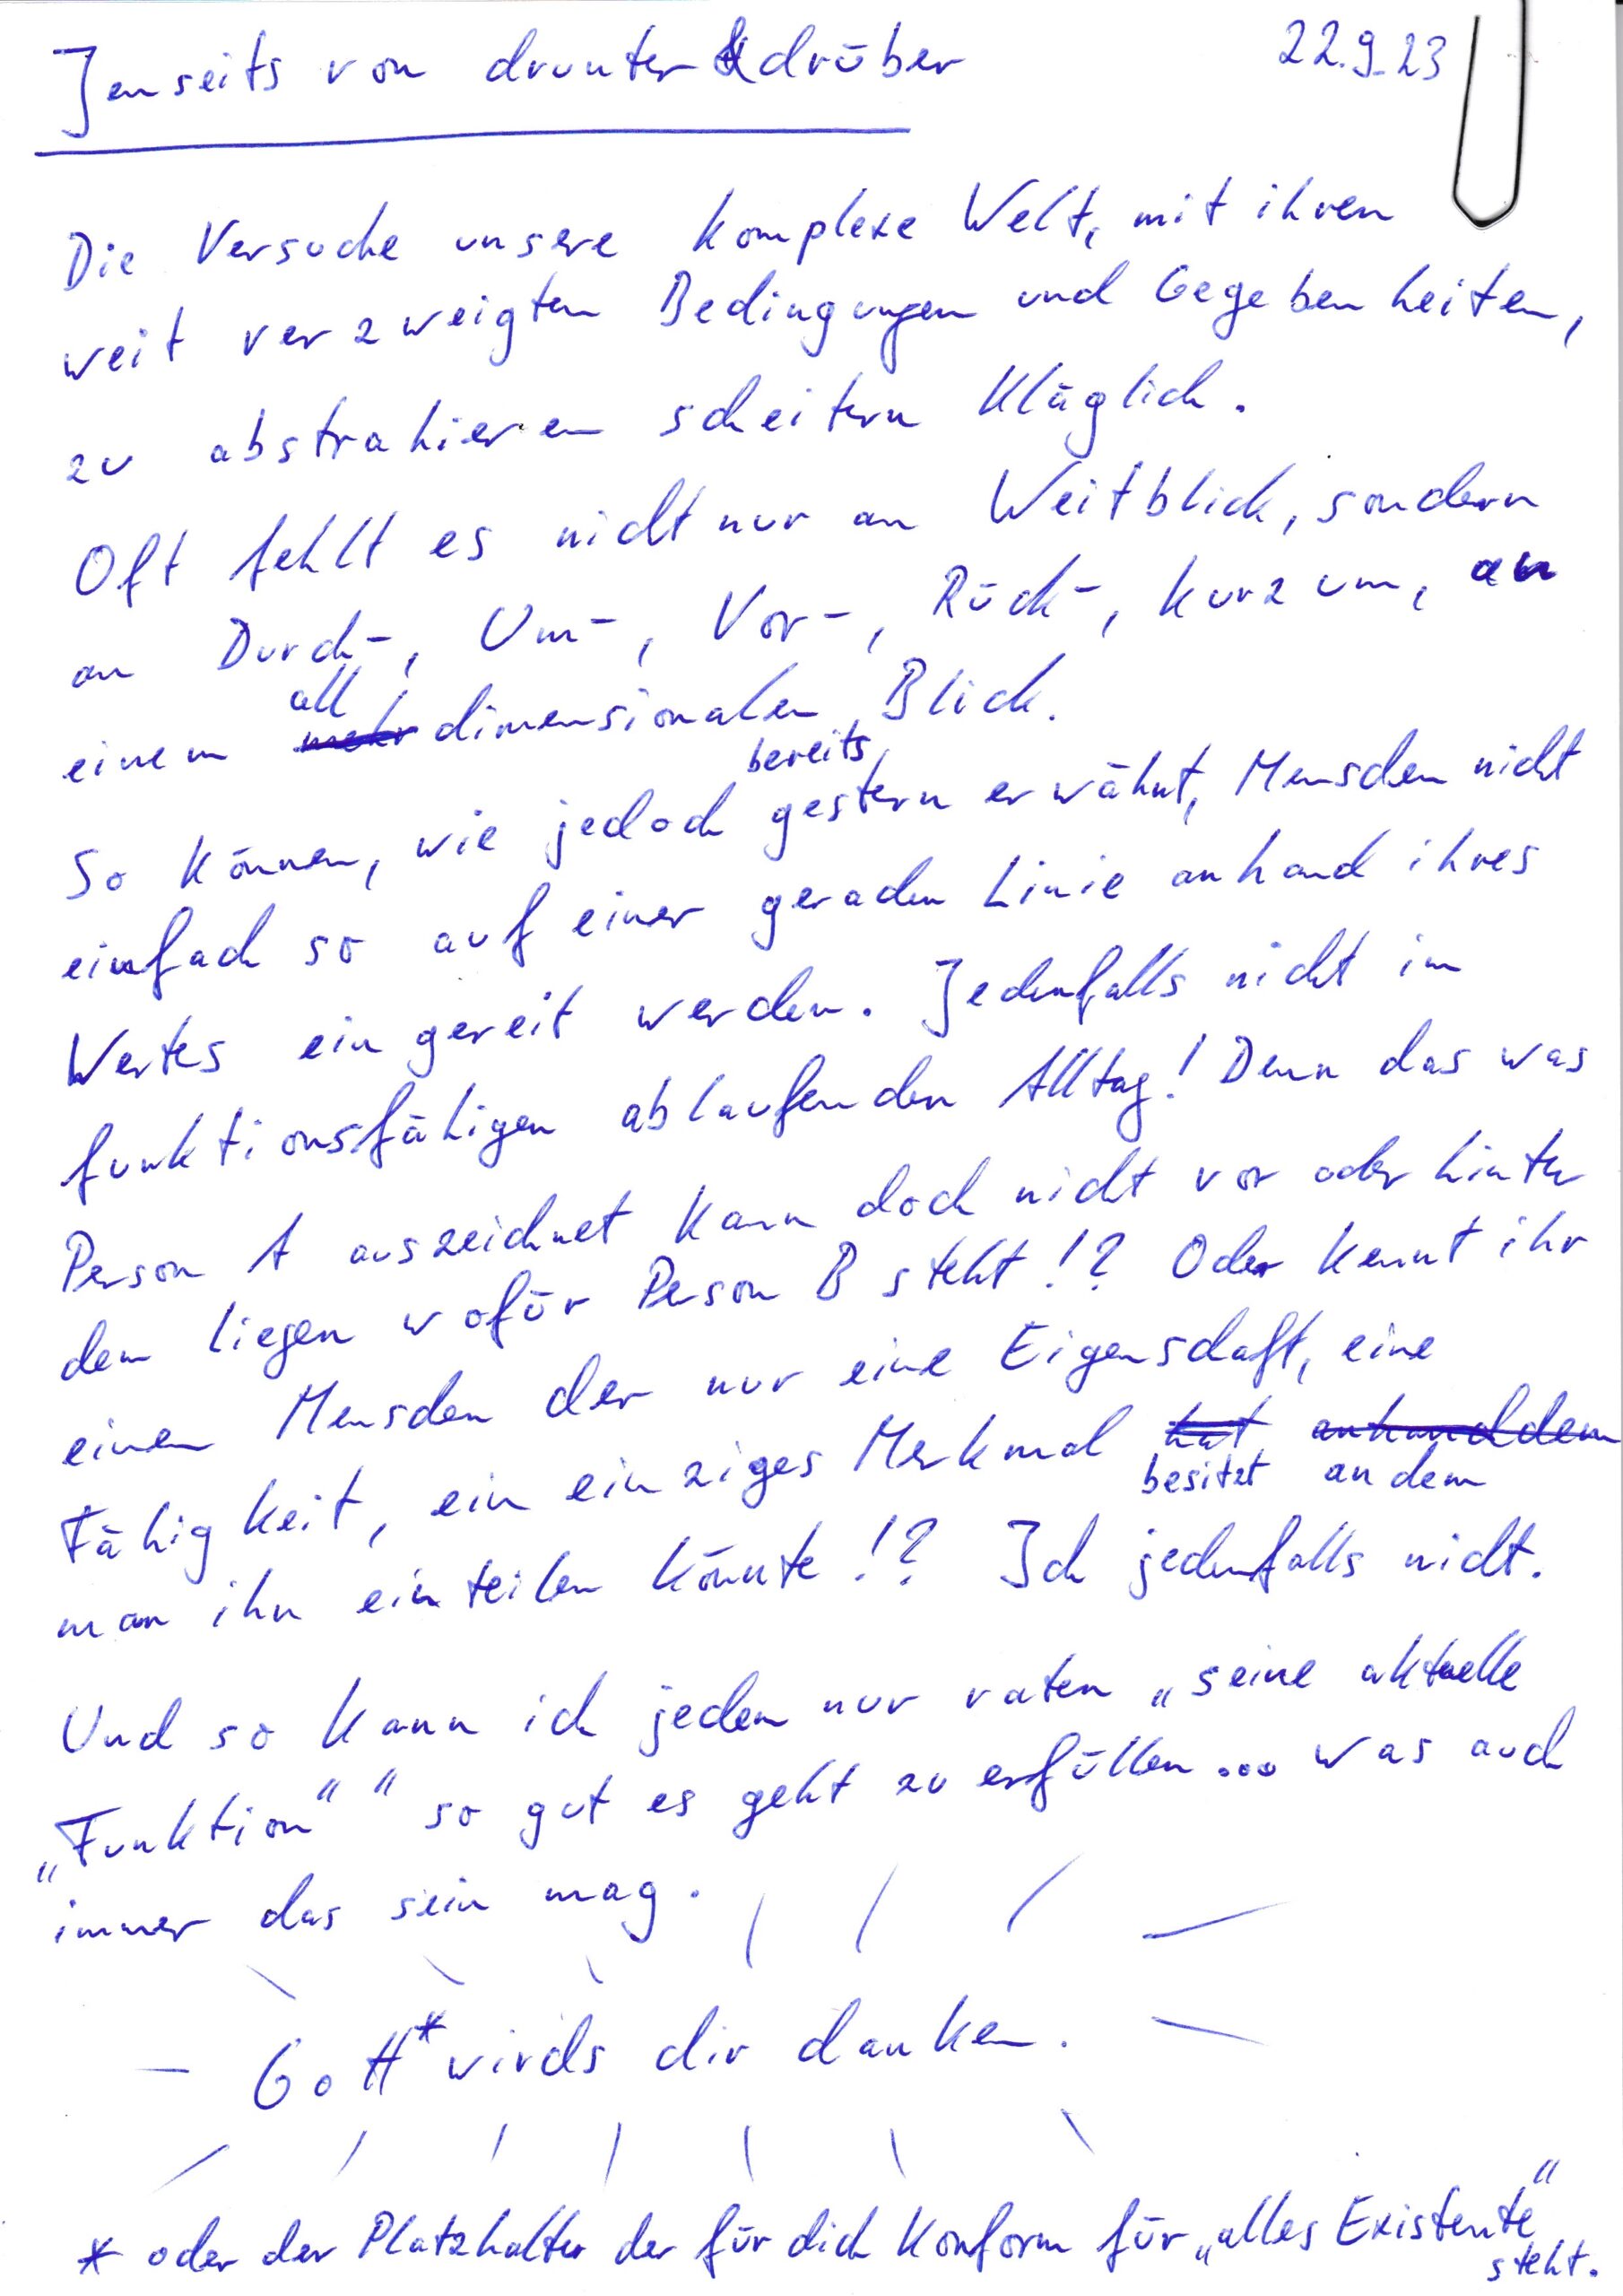 Jenseits von drunter & drüber 22.9.23
Die Versuche unsere komplexe Welt, mit ihren
weit verzweigten Bedingungen und Gegebenheiten,
zu abstrahieren scheitern kläglich.
Oft fehlt es nicht nur an Weitblick, sondern
an Durch-, Um-, Vor-, Rück-, kurzum, an
einem mehr all dimensionalen Blick.
So können, wie jedoch bereits gestern erwähnt, Menschen nicht
einfach so auf einer geraden Linie anhand ihres
Wertes eingereit werden. Jedenfalls nicht im
funktionsfähigen ablaufenden Alltag! Denn das was
Person A auszeichnet kann doch nicht vor oder hinter
dem liegen wofür Person B steht!? Oder kennt ihr
einen Menschen der nur eine Eigenschaft, eine
Fähigkeit, ein einziges Merkmal hat anhanddem
besitzt an dem
man ihn einteilen könnte!? Ich jedenfalls nicht.
Und so kann ich jedem nur raten „seine aktuelle
„Funktion“ “ so gut es geht zu erfüllen... was auch
immer das sein mag.
Gott* wirds dir danken.
* oder der Platzhalter der für dich Konform für „alles Existente“
steht.